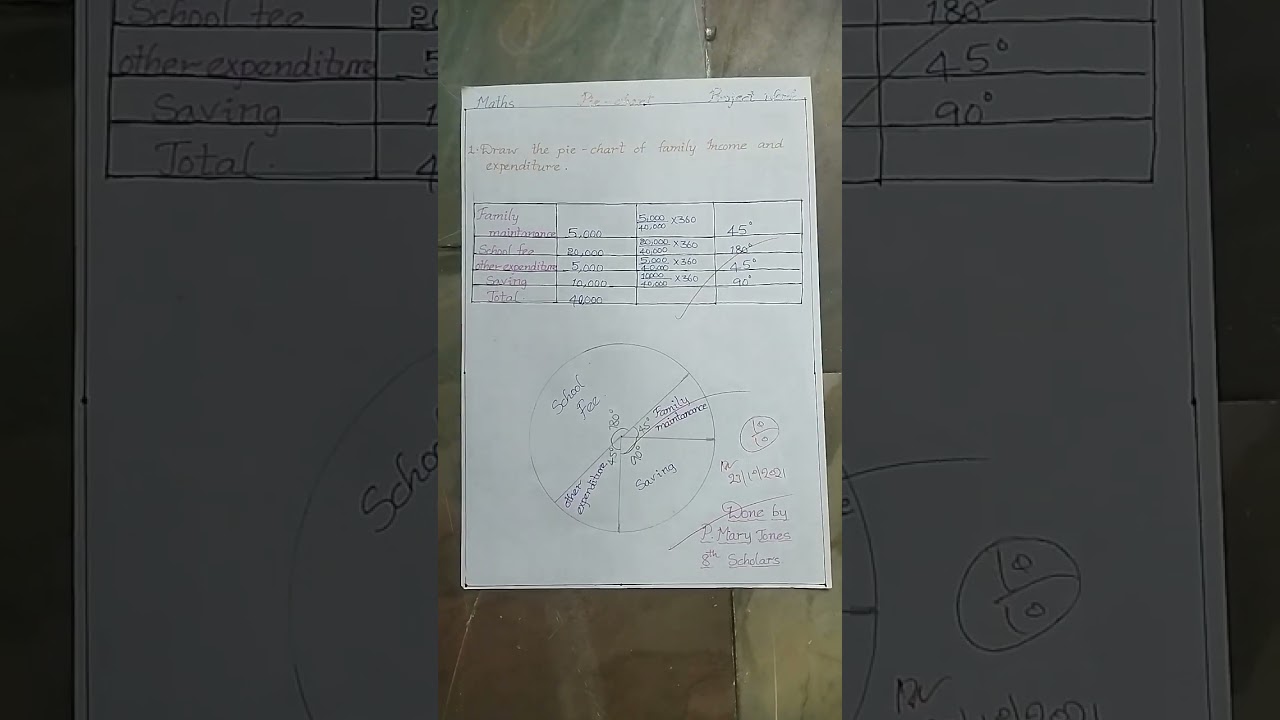 Maths Pie-chart Project work
1. Draw the pie-chart of family Income and
expenditure.
Family
maintanance 5,000 5,000/40,000 ×360 45°
School fee 20,000 20,000/40,000 ×360 180°
other expenditure 5,000 5,000/40,000 ×360 45°
Saving 10,000 10,000/40,000 ×360 90°
Total 40,000
School
Fee
180°
45° Family
maintanance
45°
90°
other
expenditure
Saving
10
10
23/10/2021
Done by
P. Mary Jones
8th Scholars
School fee 20
180°
other expenditure 5
45°
Saving 1
90°
Total. 4
Scho
10
10